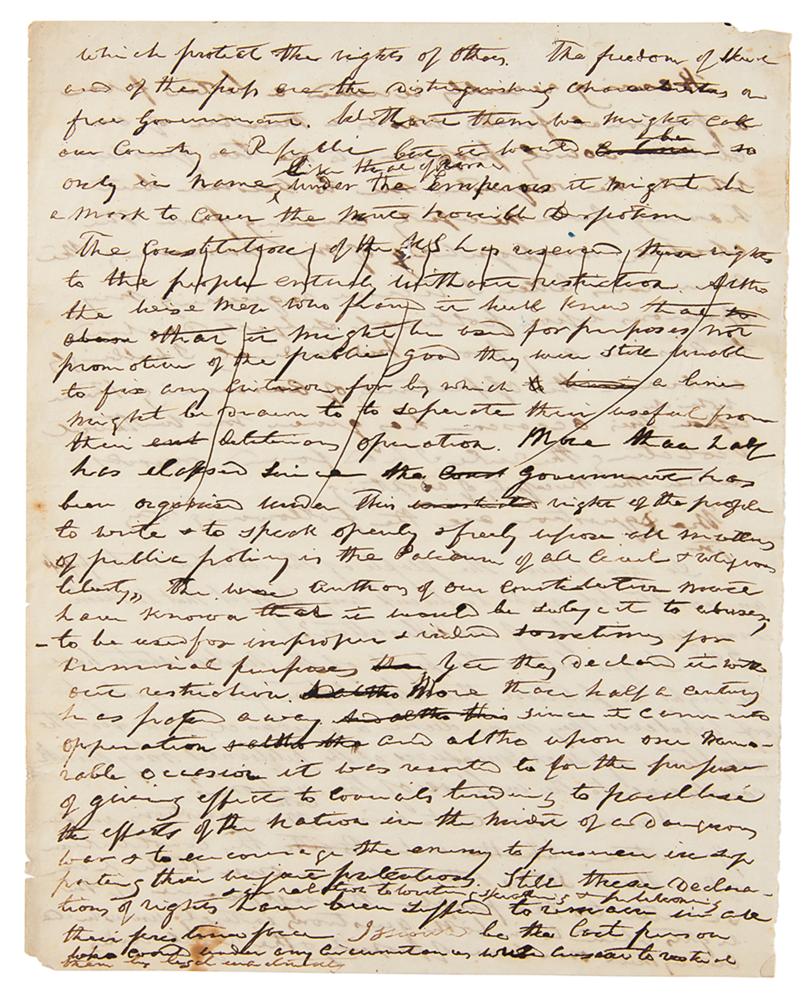 which protect the rights of others. The freedom of
and of the press are the distinguishing on
free Government. Without them we might call
our Country a Republic but it would be so
only in name, like that of Rome
under the Emperors it might be
a mask to cover the most horrible Despotism
The Constitution of the US has reserved these rights
to the people entirely without restriction. Altho
the wise men who it well knew that to
that it might be used for purposes not
promotive of the public good they were still unable
to fix any criterion for by which a line
might be drawn to to seperate their useful from
their operation. More than half
has elapsed since the Const Government has
been organised under this right of the people
to write & to speak openly & freely upon all matters
of public policy is the of all Civil & religious
liberty,, The wise authors of our Constitution must
have known that it would be subject to abuses,
- to be used for improper & indeed sometimes for
criminal purposes Yet they declared it with
out restriction. & altho More than half a century
has passed away & altho this since it came into
opperation & altho the and altho upon one memo-
rable occasion it was resorted to for the purpose
of giving effect to Counsels tending to paralise
the efforts of the nation in the midst of a dangerous
war & to encourage the enemy to in sup
porting their unjust pretentions. Still these Declara-
tions of rights in relation to writing speaking & publishing
have been suffered to remain in all
their pristine force I should be the last person
who could under any circumstances to restrict
them by legal enactments